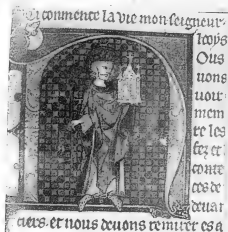 Ci commence la vie monseigneur
leoys
Ous
uons
uoir
mem
re les
fez et
conte
ces de
deuan
ciers. et nous deuons remirer es a